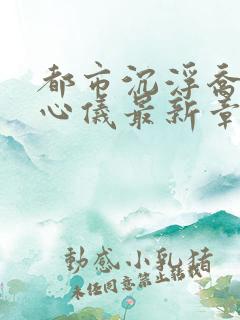 都市沉浮喬
心儀最新章
動感小乳猪
未经同意禁止转载